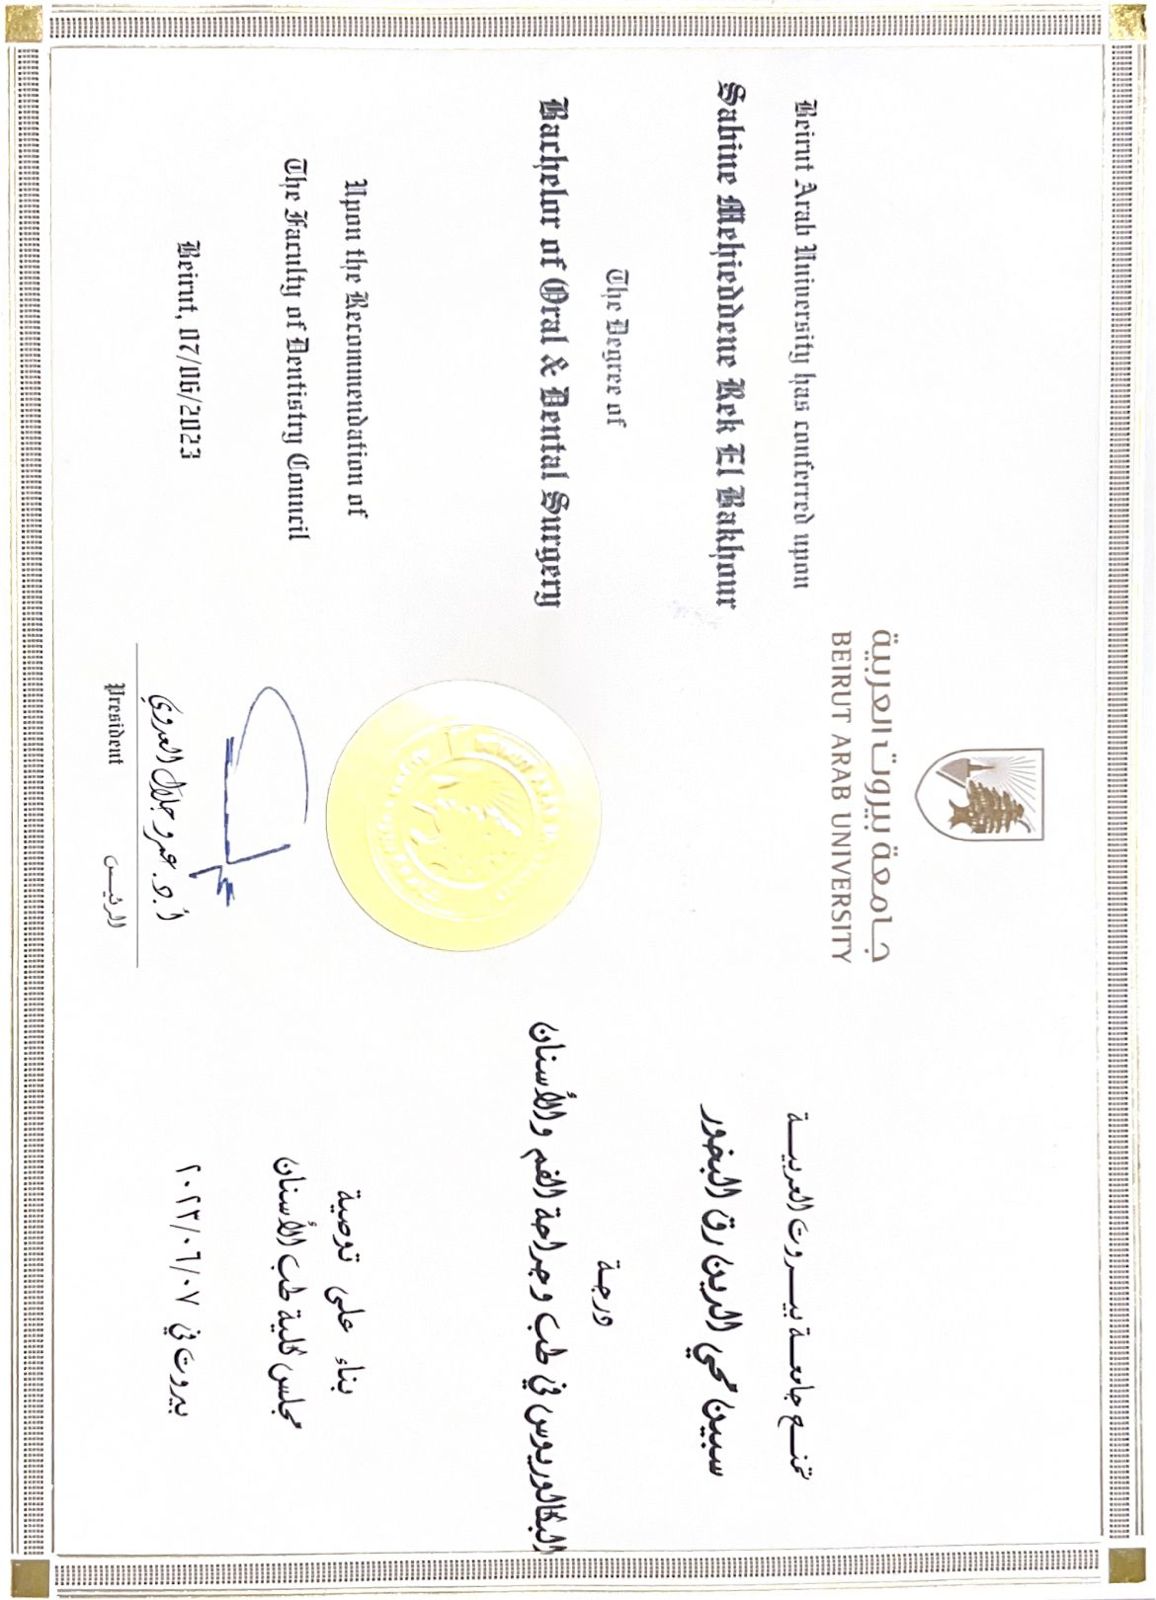 جامعة بيروت العربية
BEIRUT ARAB UNIVERSITY
Beirut Arab University has conferred upon
Sabine Mehieddene Rek El Bakhour
The Degree of
Bachelor of Oral & Dental Surgery
Upon the Recommendation of
The Faculty of Dentistry Council
Beirut, 07/06/2023
تمنح جامعة بيروت العربية
سبين محي الدين رق البخور
درجة
البكالوريوس في طب وجراحة الفم والأسنان
بناء على توصية
مجلس كلية طب الأسنان
بيروت في ٢٠٢٣/٠٦/٠٧
أ.د. عمرو جلال العدوي
President الرئيس